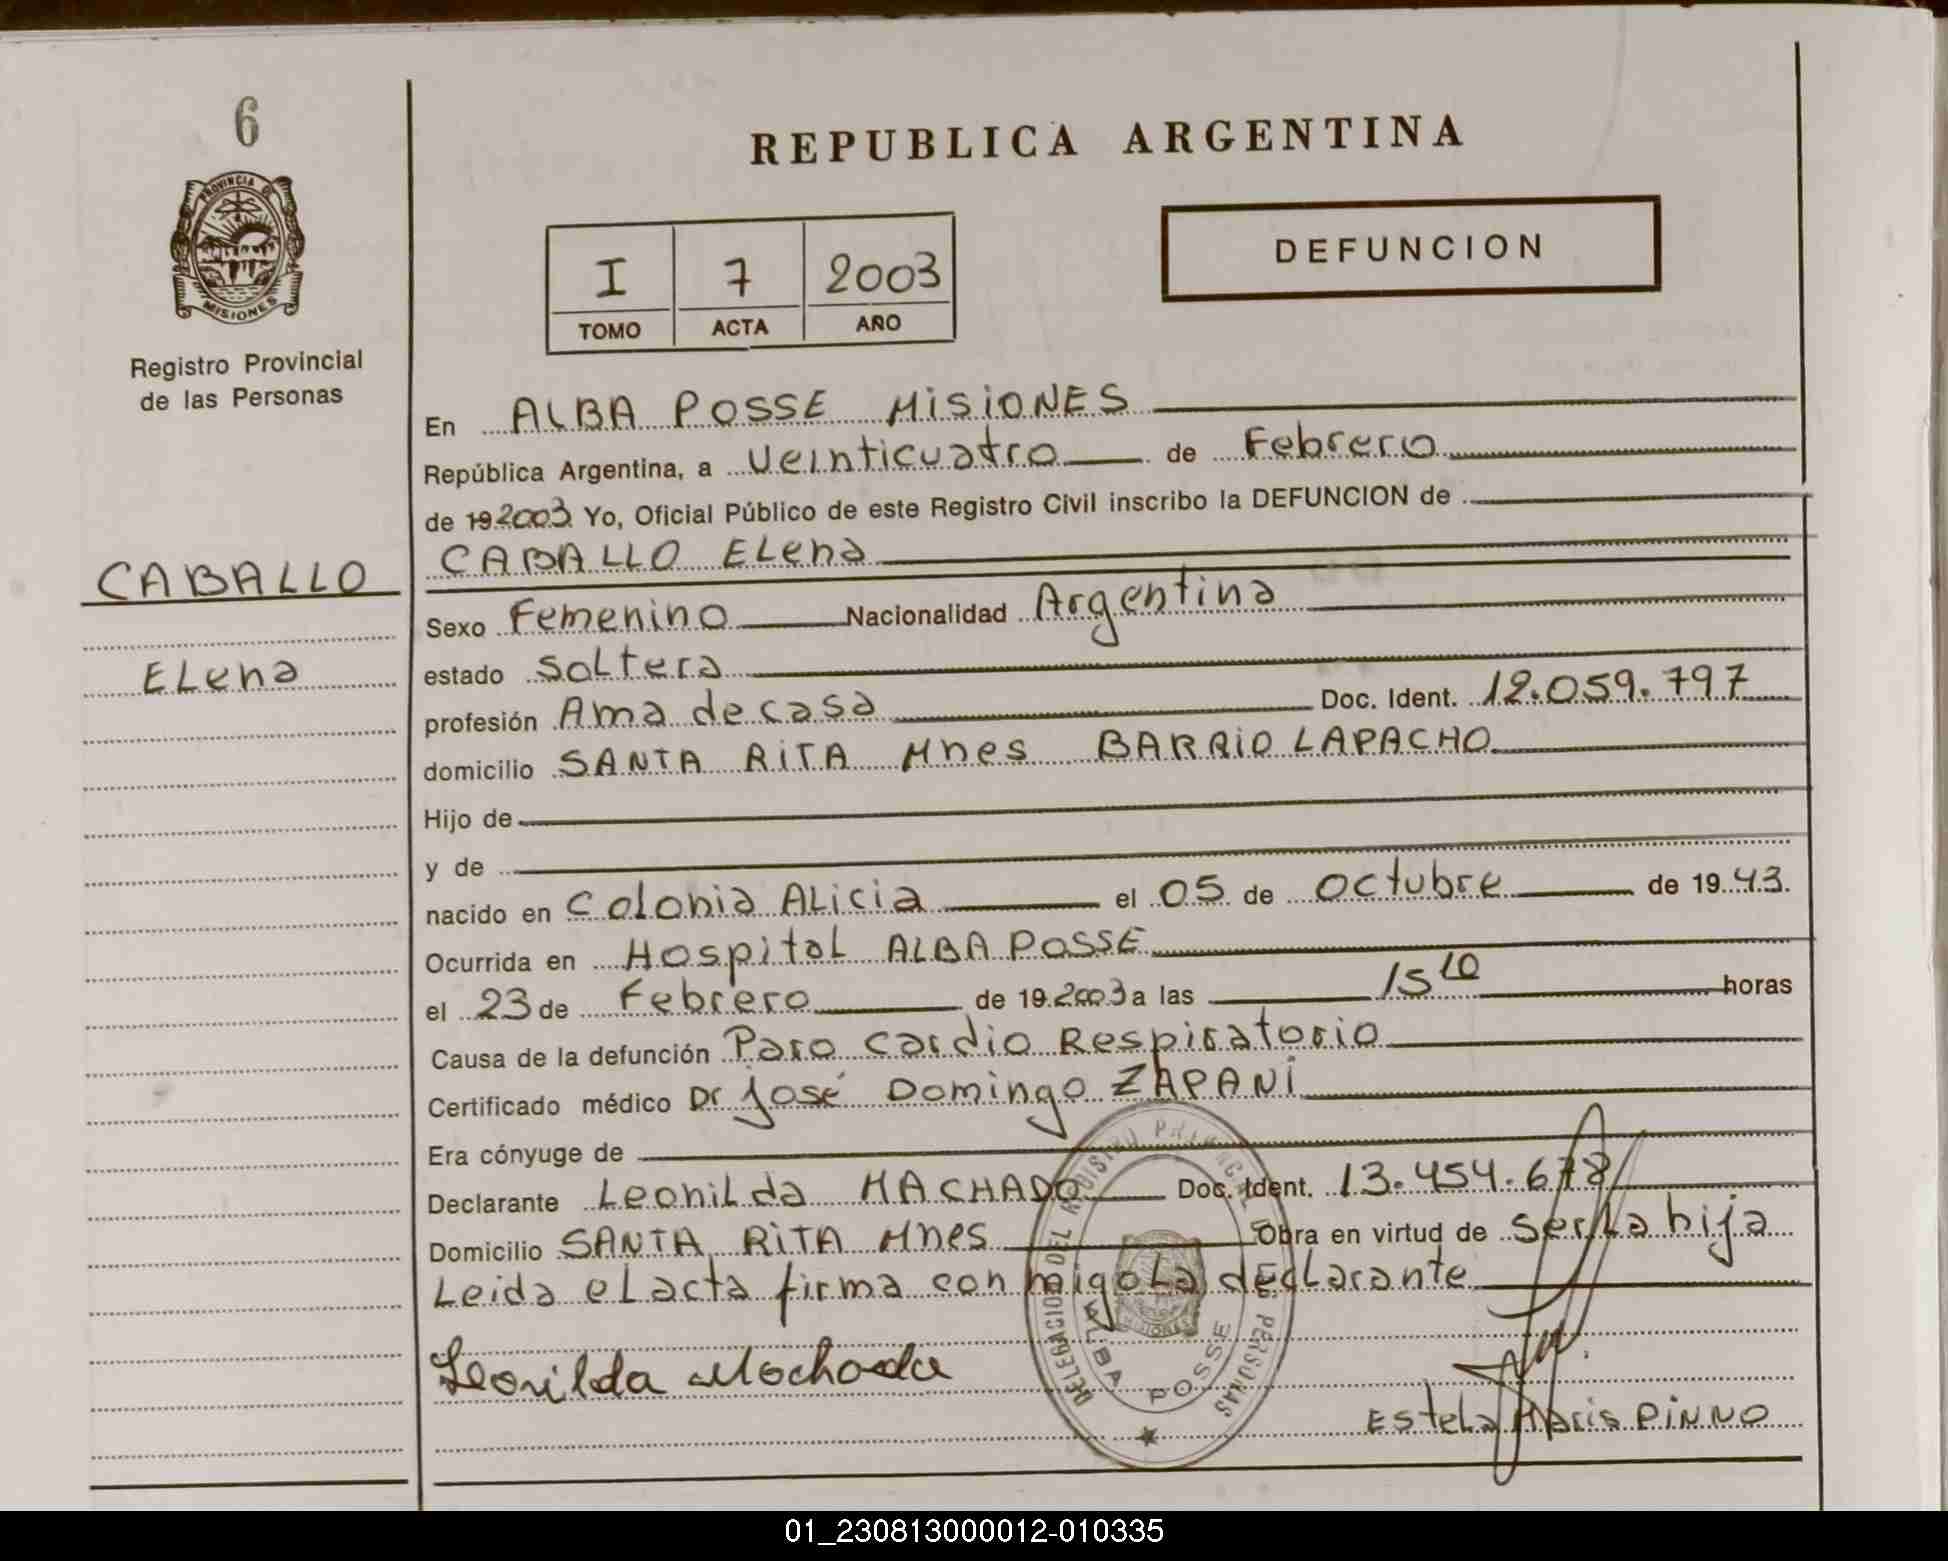 6
PROVINCIA DE
MISIONES
Registro Provincial
de las Personas
CABALLO
Elena
REPUBLICA ARGENTINA
I 7 2003
TOMO ACTA AÑO
DEFUNCION
En ALBA POSSE MisiONES
República Argentina, a veinticuatro de Febrero
de 19 2003 Yo, Oficial Público de este Registro Civil inscribo la DEFUNCION de
CABALLO Elena
Sexo Femenino Nacionalidad Argentina
estado soltera
profesión Ama de casa Doc. Ident. 12.059.797
domicilio SANTA RiTA Mnes BARRiO LAPACHO
Hijo de
y de
nacido en Colonia Alicia el 05 de octubre de 19 43.
Ocurrida en Hospital ALBA POSSE
el 23 de Febrero de 19 2003 a las 15 10 horas
Causa de la defunción Paro Cardio Respiratorio
Certificado médico Dr José Domingo ZAPANi
Era cónyuge de
Declarante Leonilda MACHADO Doc. Ident. 13.454.678
Domicilio SANTA RiTA Mnes Obra en virtud de ser la hija
Leida el acta firma conmigo la declarante
Leonilda Machado
Estela Maris PiNNO
DELEGACION DEL REGISTRO PROVINCIAL DE LAS PERSONAS
ALBA POSSE
MISIONES
01_230813000012-010335